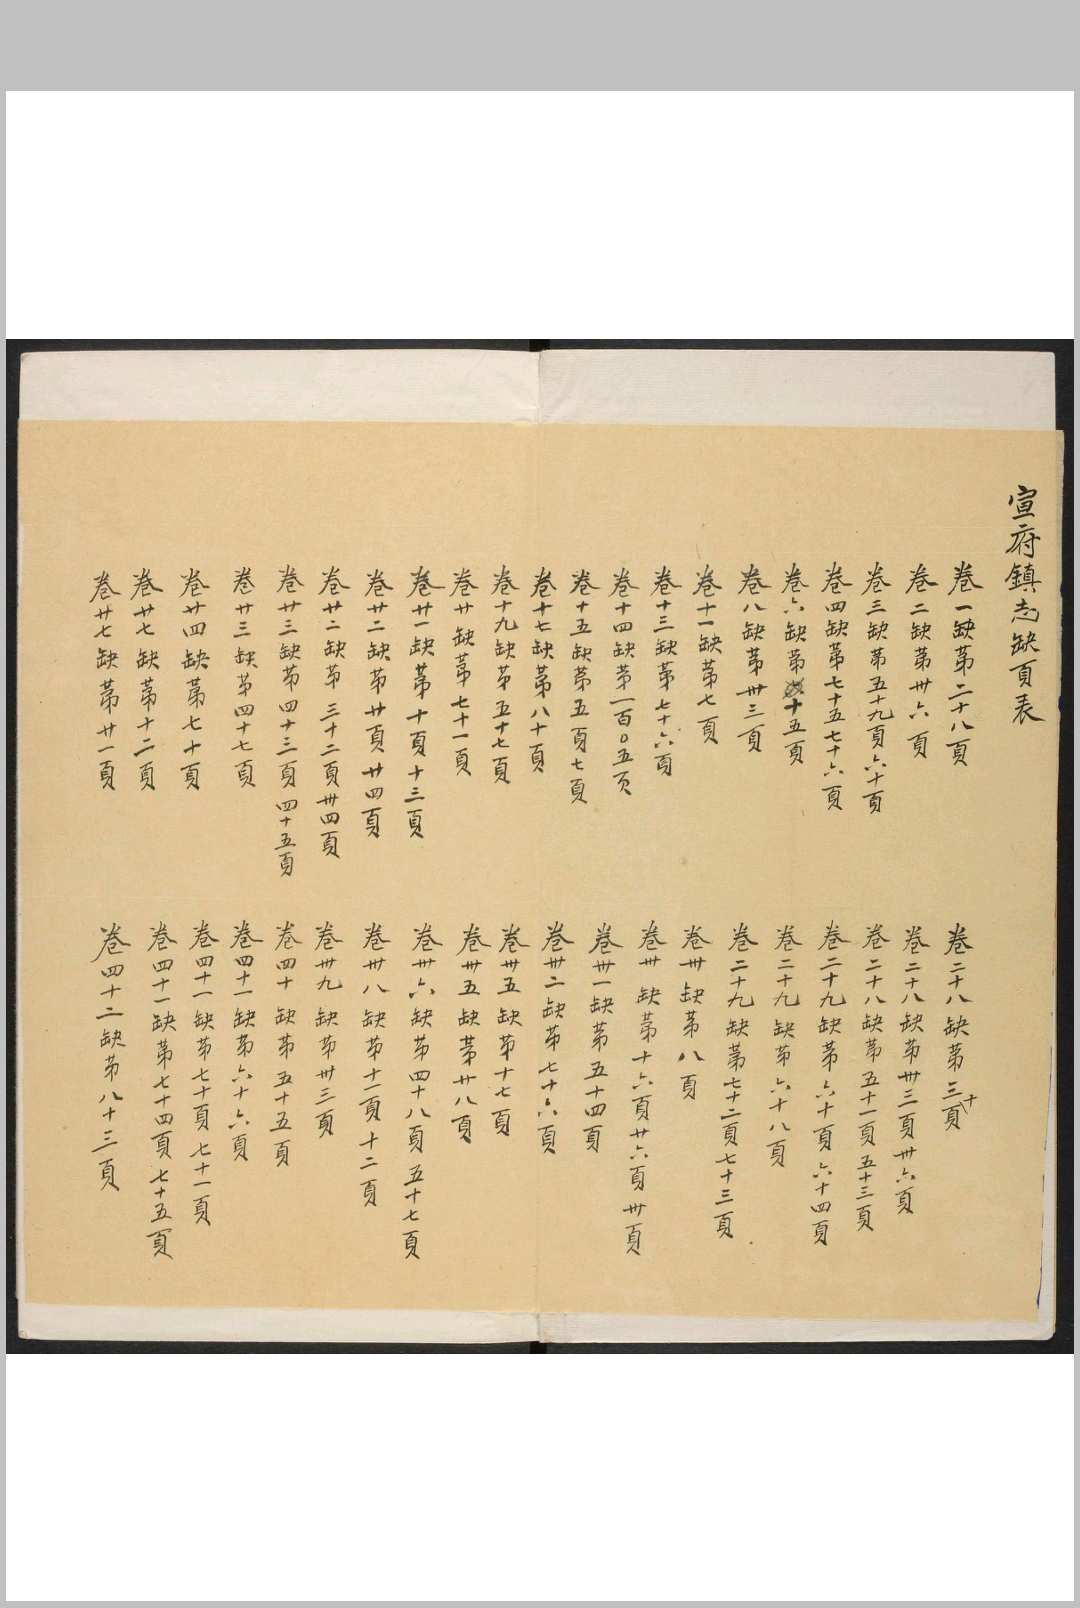 宣府鎮志缺頁表
卷一缺第二十八頁
卷二缺第卅六頁
卷三缺第五十九頁六十頁
卷四缺第七十五七十六頁
卷六缺第十五頁
卷八缺第卅三頁
卷十一缺第七頁
卷十三缺第七十六頁
卷十四缺第一百〇五页
卷十五缺第五頁七頁
卷十七缺第八十頁
卷十九缺第五十七頁
卷廿缺第七十一頁
卷廿一缺第十頁十三頁
卷廿二缺第廿頁廿四頁
卷廿二缺第三十二頁卅四頁
卷廿三缺第四十三頁四十五頁
卷廿三缺第四十七頁
卷廿四缺第七十頁
卷廿七缺第十二頁
卷廿七缺第廿一頁
卷二十八缺第三十頁
卷二十八缺第卅三頁卅六頁
卷二十八缺第五十一頁五十三頁
卷二十九缺第六十頁六十四頁
卷二十九缺第六十八頁
卷二十九缺第七十二頁七十三頁
卷卅缺第八頁
卷卅缺第十六頁廿六頁卅頁
卷卅一缺第五十四頁
卷卅二缺第七十六頁
卷卅五缺第十七頁
卷卅五缺第廿八頁
卷卅六缺第四十八頁五十七頁
卷卅八缺第十一頁十二頁
卷卅九缺第卅三頁
卷四十缺第五十五頁
卷四十一缺第六十六頁
卷四十一缺第七十頁七十一頁
卷四十一缺第七十四頁七十五頁
卷四十二缺第八十三頁